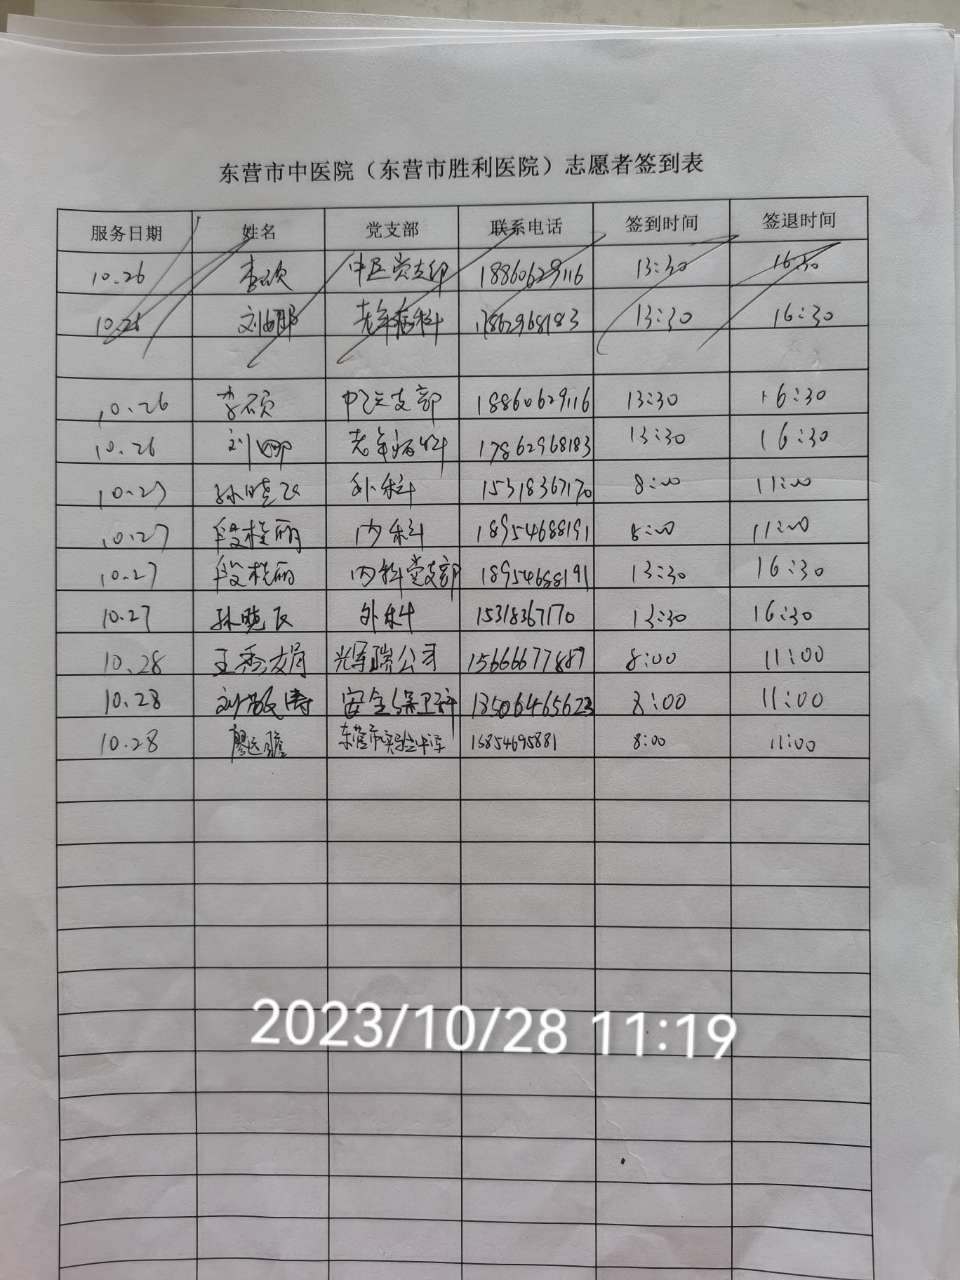 东营市中医院（东营市胜利医院）志愿者签到表
服务日期 姓名 党支部 联系电话 签到时间 签退时间
10.26 李硕 中医党支部 18860629116 13:30 16:30
10.26 刘娜 老年病科 17862968183 13:30 16:30
10.26 李硕 中医支部 18860629116 13:30 16:30
10.26 刘娜 老年病科 17862968183 13:30 16:30
10.27 孙晓 外科 15318367170 8:00 11:00
10.27 段桂丽 内科 18954688191 8:00 11:00
10.27 段桂丽 内科党支部 18954688191 13:30 16:30
10.27 孙晓 外科 15318367170 13:30 16:30
10.28 王秀娟 辉瑞公司 15666677887 8:00 11:00
10.28 刘敬涛 安全保卫科 13506465623 8:00 11:00
10.28 廖 东营市实验中学 8:00 11:00
2023/10/28 11:19